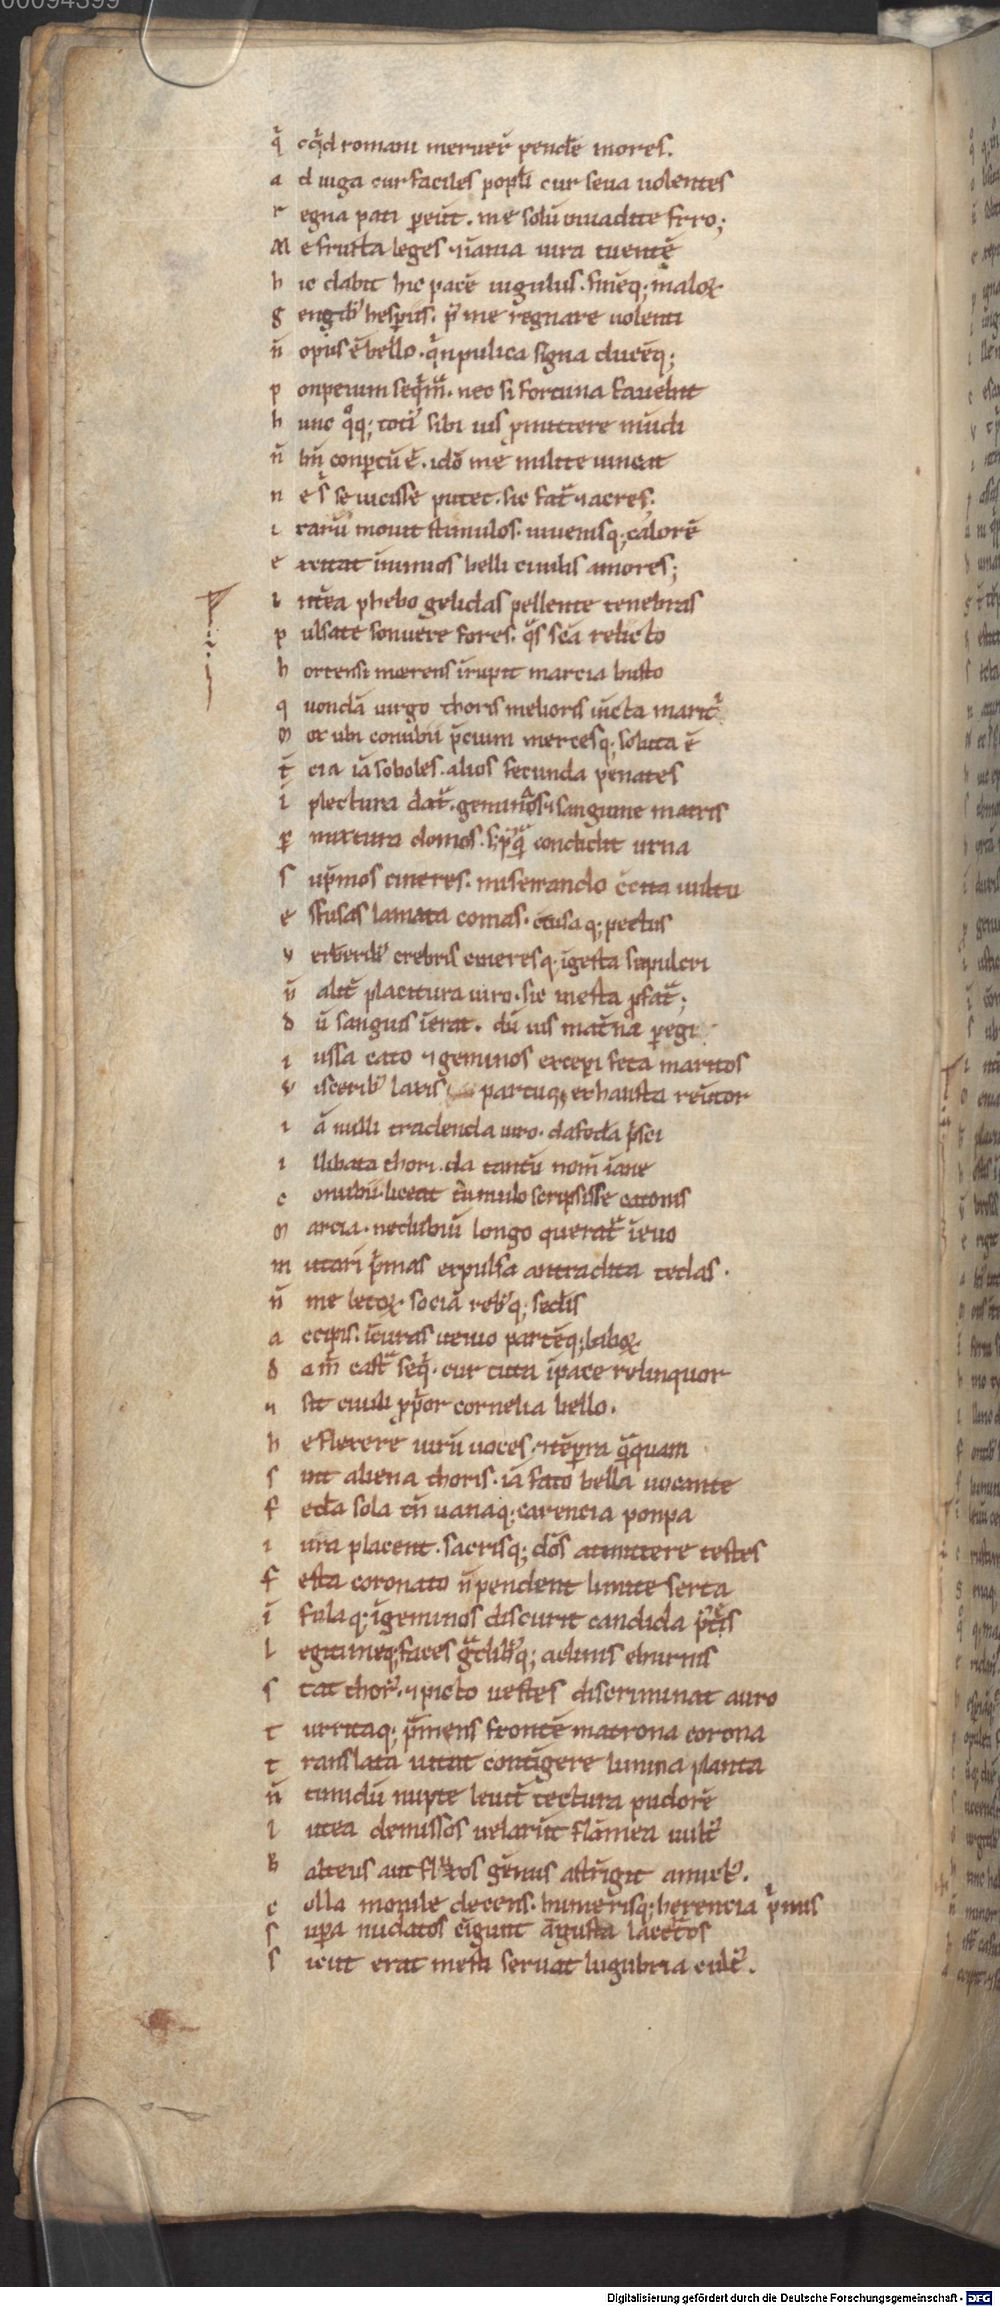 00094399
q̄ cq̄d romani meruer̄ pendēe mores.
a d iuga cur faciles popl̄i cur seua uolentes
r egna pati peūt. me solū inuadite frro;
M e frusta leges ⁊ inania iura tuentē
h ic dabit hic pacē iugulus. finēq; maloꝝ
g entib᷒ hesp̄iis. p᷒ me regnare uolenti
n̄ opus ē bello. q̄n publica signa ducēq;
p onpeium seq̄m̄. nec si fortuna fauebit
h unc q̊q; toti᷒ sibi ius p̄mittere mūdi
n̄ bn̄ conp̄tū ē. ido me milite uincat
n e s̄ se uicisse putet. sic fat᷑ ⁊ acres;
i rarū mouit stimulos. iuuenisq; calorē
e xcitat inimios belli ciuilis amores;
i nt̄ea phebo gelidas pellente tenebras
p ulsate sonuere fores. q̄s sc̄a relicto
h ortensi merens irupit marcia busto
q uondā uirgo thoris melioris iūcta marit᷒
m ox ubi conubii p̄cium mercesq; soluta ē
t̄ cia iā soboles. alios fecunda penates
i pletura dat᷑. geminos ⁊ sanguine matris
p mixtura domos. s; p᷒q̄ condidit urna
s up̄mos cineres. miserando c̄cita uultu
e ffusas laniata comas. c̄tusaq; pectus
v erberib᷒ crebris cineresq; īgesta sepulcri
n̄ alit᷑ placitura uiro. sic mesta p̄fat᷑;
d ū sanguis inerat. dū uis mat̄na peregi
i ussa cato ⁊ geminos excepi feta maritos
v iscerib᷒ laxis partuq; exhausta reūtor
i ā nulli tradenda uiro. da feda p̄sci
i llibata thori. da tantū nom̄ inane
c onubii. liceat tumulo scripsisse catonis
m arcia. nec dubiū longo querat᷑ in euo
m utari p̄mas expulsa antradita tedas.
n̄ me letoꝝ sociā reb᷒q; sec̄dis
a ccipis. ī curas uenio partēq; laboꝝ
d a m̄ castra seq̄. cur tuta ī pace relinquor
⁊ sit ciuili p̄pior cornelia bello.
h e flexere uirū uoces. ⁊ tēpora q̄quam
s int aliena thoris. iā fato bella uocante
f edera sola tn̄ uanaq; carencia ponpa
i ura placent. sacrisq; dōs atmittere testes
f esta coronato n̄ pendent limite serta
i̅ fulaq; īgeminos discurit candida p̄tis
l egitimeq; faces g̊dib᷒q; acliuis eburnis
s tat thor᷒. ⁊ picto uestes discriminat auro
t urritaq; p̄mens frontē matrona corona
t ranslata uitat contīgere limina planta
n̄ timidū nupte leuit̄ tectura pudorē
l utea demissos uelarūt flamea uult᷒
b alteus aut fluxos gēmis astrīgit amict᷒.
c olla monile decens. humerisq; herencia p̄mis
s upara nudatos cīgunt angusta lacertos
s icut erat mesti seruat lugubria cult᷒.
Digitalisierung gefördert durch die Deutsche Forschungsgemeinschaft - DFG